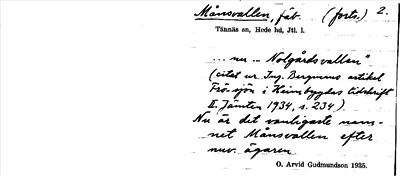 Månsvallen, fäb. (forts.) 2.
Tännäs sn, Hede hd, Jtl. l.
... nu „Nolgårdsvallen"
(citat ur Ing. Bergmans artikel
Frösjön i Heimbygdas tidskrift
II. Jämten 1934, s. 234)
Nu är det vanligaste nam-
net Månsvallen efter
nuv. ägaren
O. Arvid Gudmundson 1935.